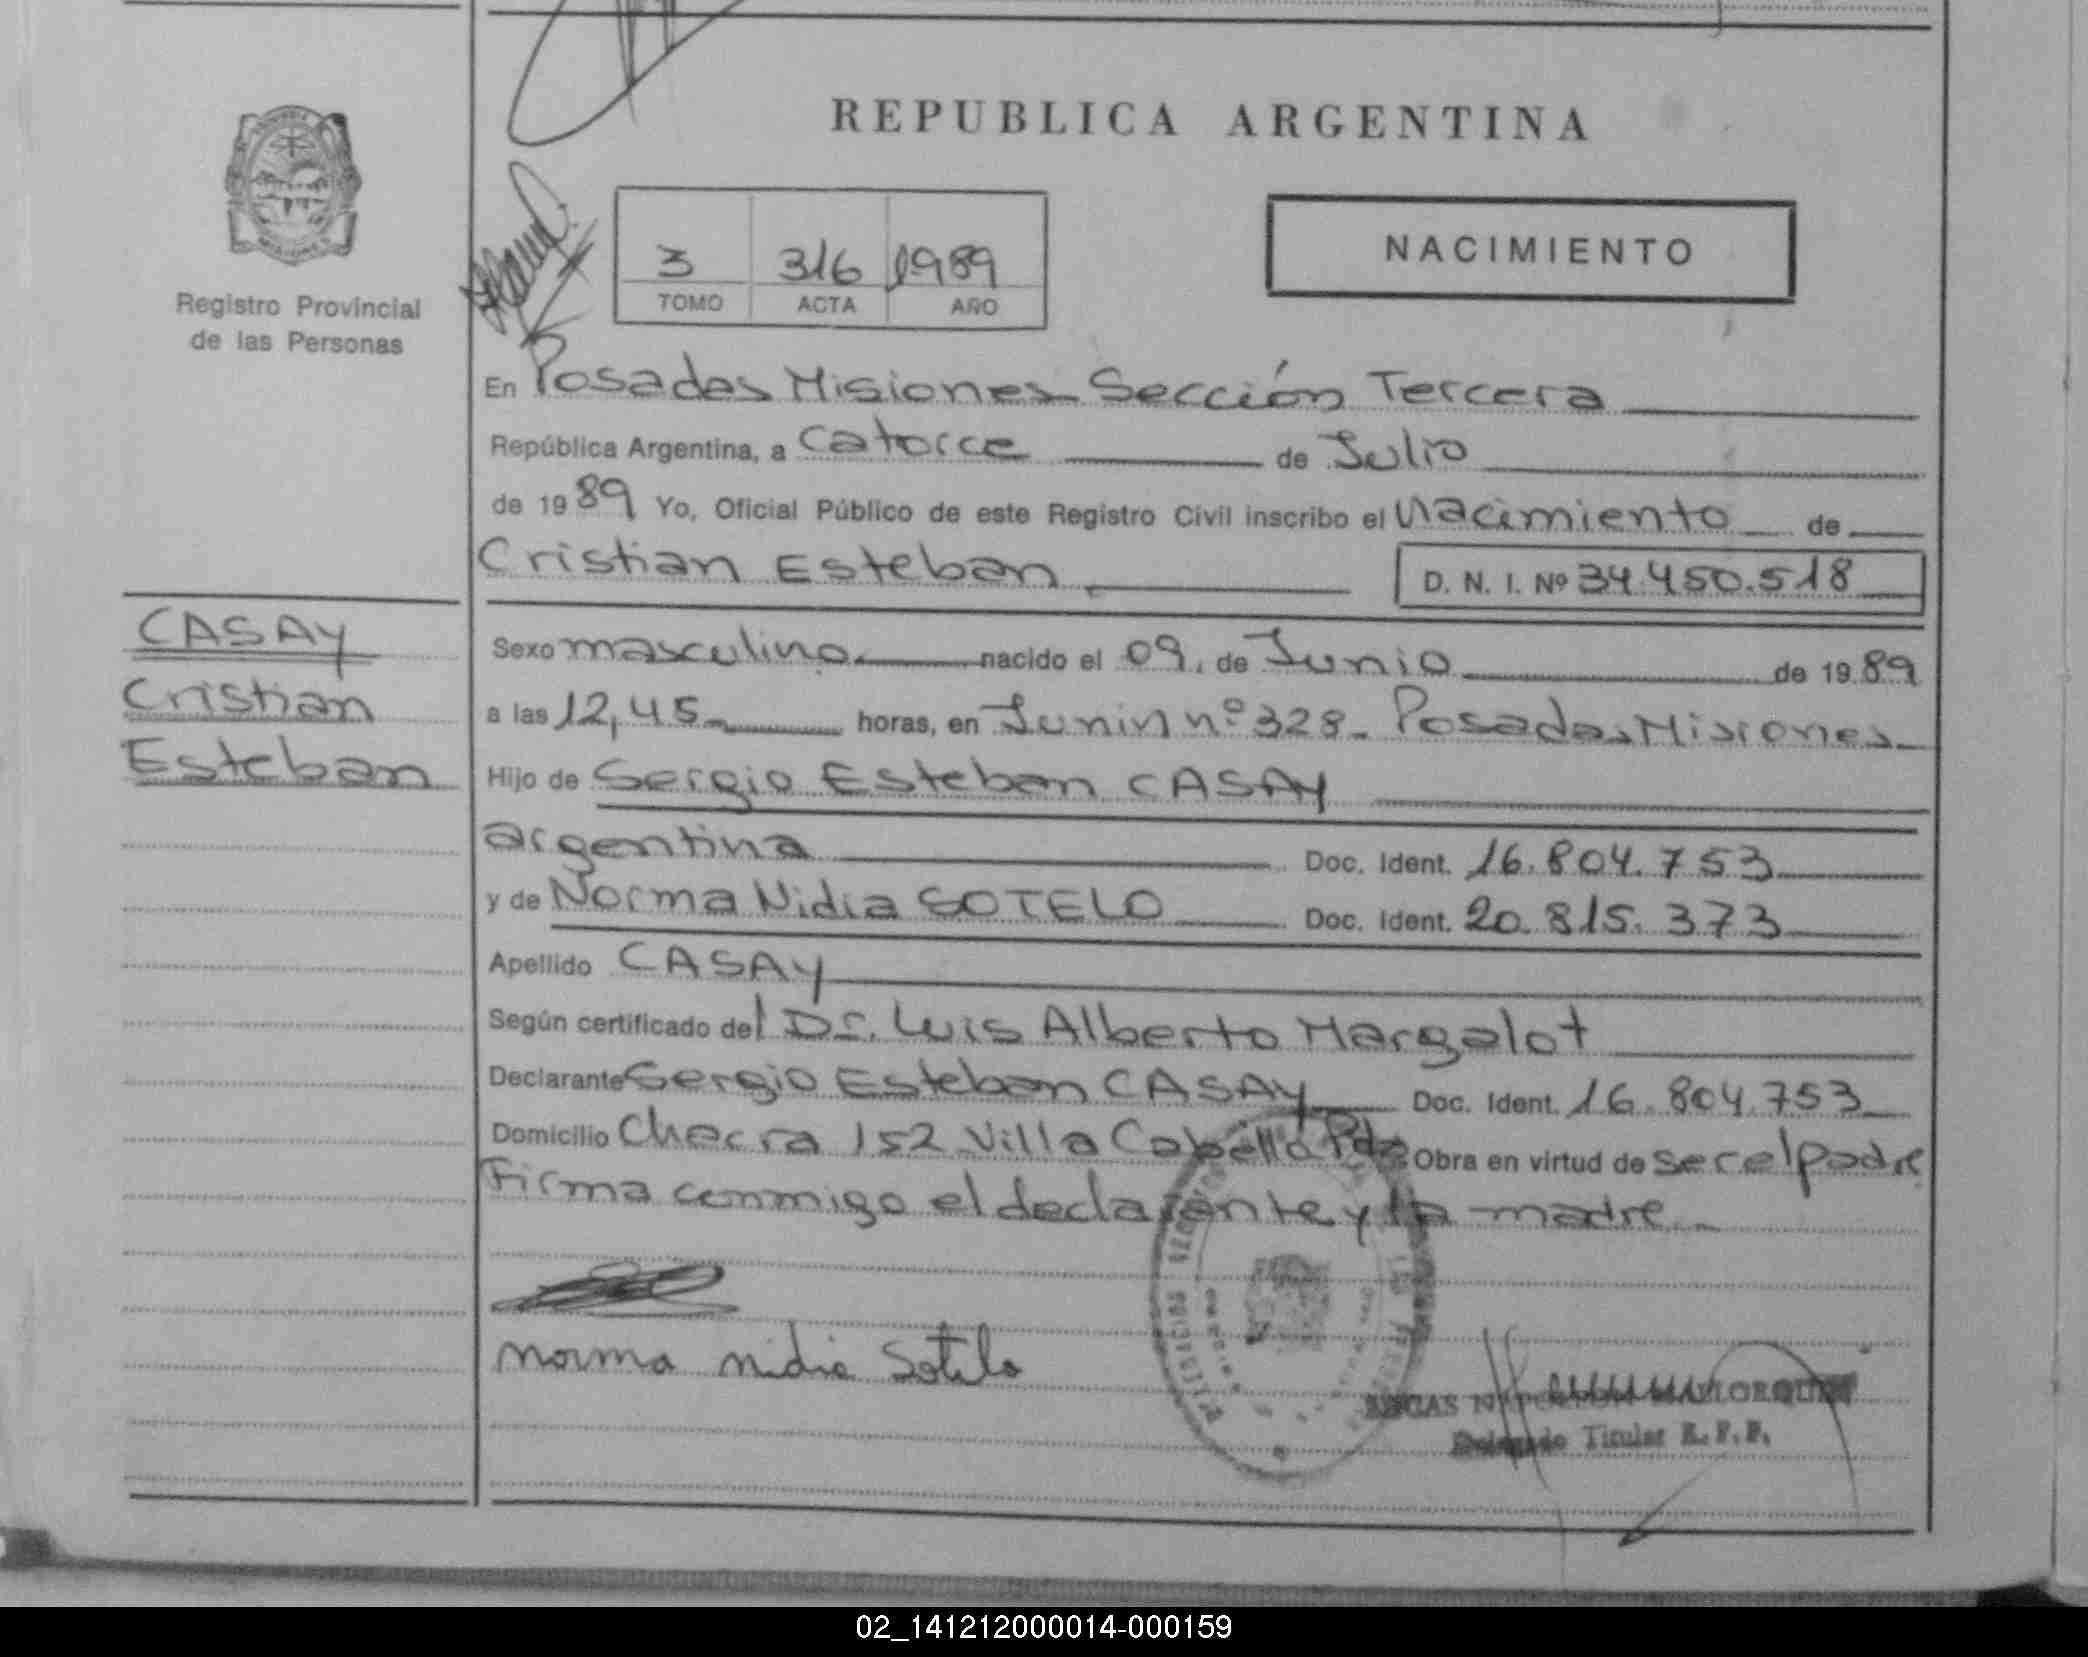 REPUBLICA ARGENTINA
Registro Provincial
de las Personas
3 316 1989
TOMO ACTA AÑO
NACIMIENTO
En Posadas Misiones Sección Tercera
República Argentina, a Catorce de Julio
de 1989 Yo, Oficial Público de este Registro Civil inscribo el Nacimiento de
Cristian Esteban D. N. I. Nº 34.450.518
CASAY
Cristian
Esteban
Sexo masculino nacido el 09. de Junio de 1989
a las 12,45 horas, en Junin nº 328- Posadas Misiones
Hijo de Sergio Esteban CASAY
argentina Doc. Ident. 16.804.753
y de Norma Nidia SOTELO Doc. Ident. 20.815.373
Apellido CASAY
Según certificado del Dr. Luis Alberto Margalot
Declarante Sergio Esteban CASAY Doc. Ident. 16.804.753
Domicilio Chacra 152 Villa Cabello Pdas Obra en virtud de ser el padre
Firma conmigo el declarante y la madre
norma nidia Sotelo
Titular
02_141212000014-000159